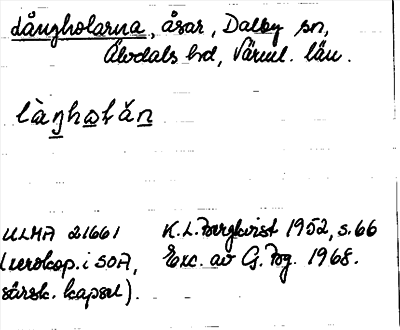 långholarna, åsar, Dalby sn,
Älvdals hd, Värml. län.
làŋhɷɫăn
ULMA 21661 K.L. Bergkvist 1952, s. 66
(xerokop. i SOA, Exc. av G. Bg. 1968.
särsk. kapsel).